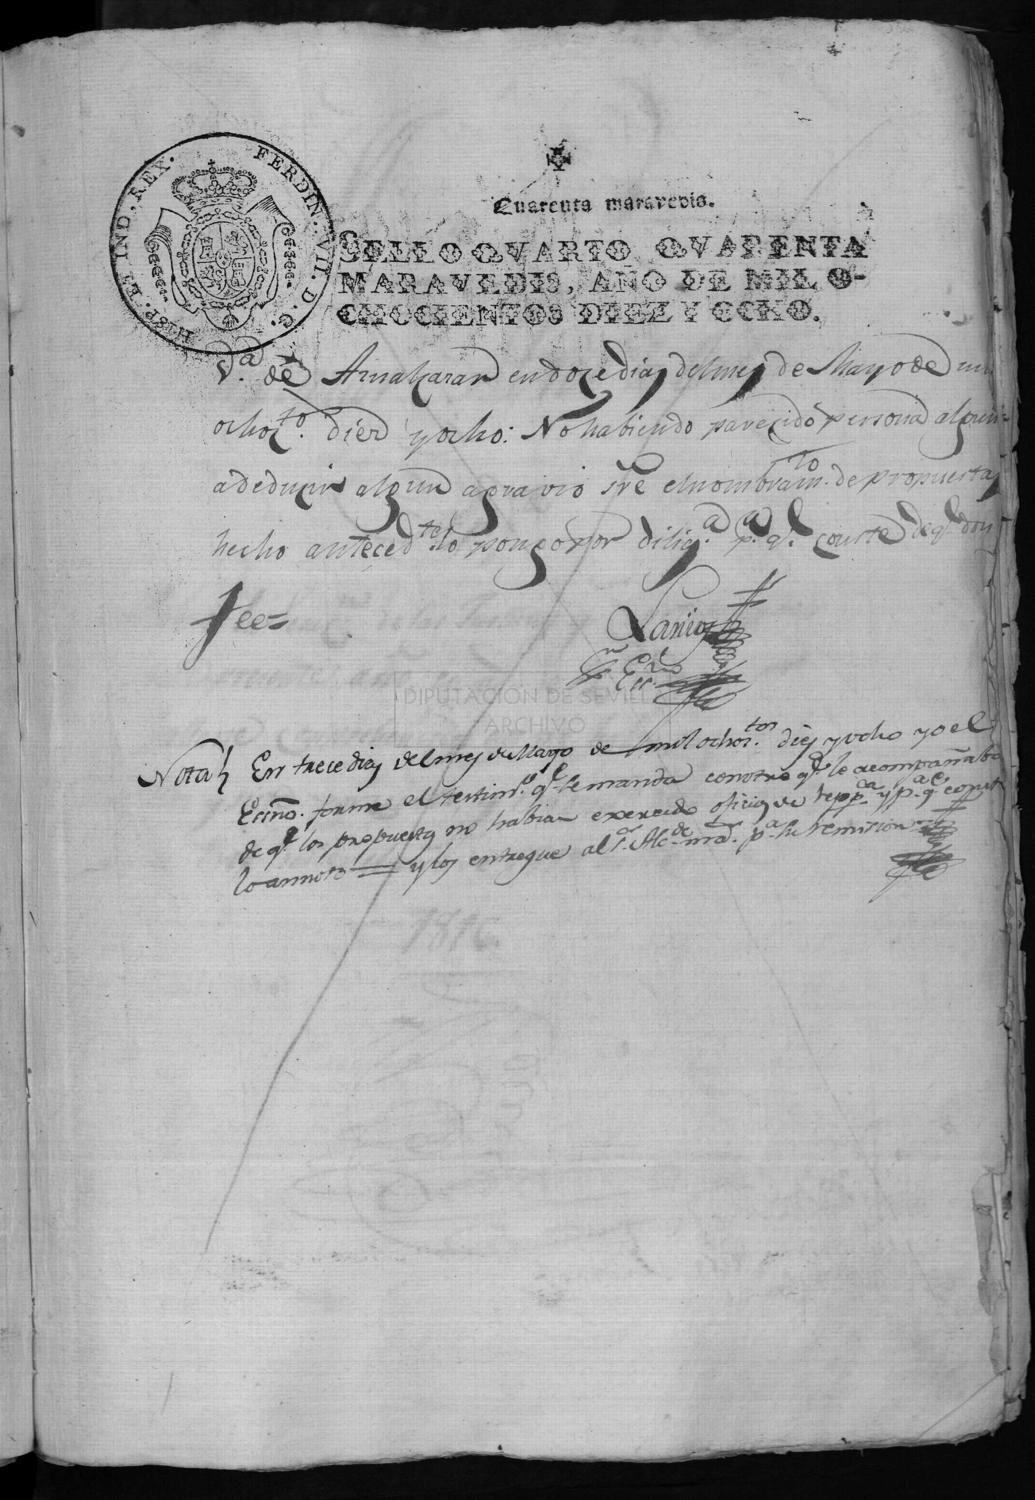 HISP. ET IND. REX. FERDIN. VII. D. G.
Quarenta maravedis.
SELLO QVARTO, QVARENTA
MARAVEDIS, AÑO DE MIL O-
CHOCIENTOS DIEZ Y OCHO.
V.ª de Aznalcazar en doze dias del mes de Mayo de mil
ochoz.to diez y ocho: No habiendo parezido persona alguna
a deduzir algun agravio sre el nombram.to de propuestas
hecho anteced.te lo pongo por dilig.a p.a q.e conste de q.e doy
fee=
Ess.no
DIPUTACIÓN DE SEVILLA
ARCHIVO
Nota En trece dias del mes de Mayo de mil ochos.tos diez y ocho yo el
Ecsno. forme el testim.o q.e se manda con otro q.e le acompañaba
de q.e los propuestos no habian exercido oficios de repp.ca y p.a q.e conste
lo annoto = y los entregue al S.r Alc.de p.a su remision
1816.